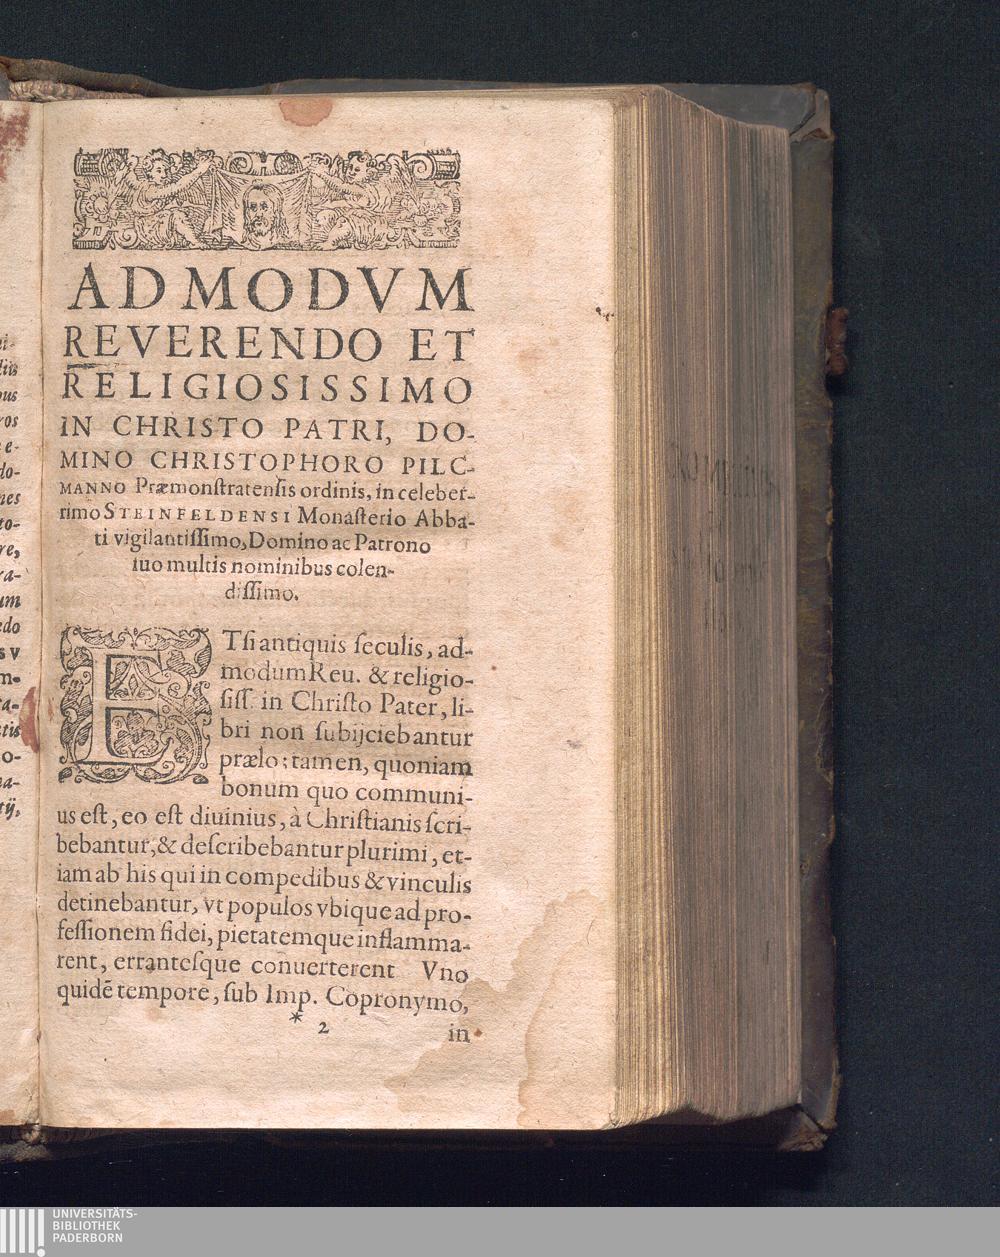 ADMODVM
REVERENDO ET
RELIGIOSISSIMO
IN CHRISTO PATRI, DO-
MINO CHRISTOPHORO PILC-
MANNO Præmonſtratenſis ordinis, in celeber-
rimo STEINFELDENSI Monaſterio Abba-
ti vigilantiſſimo, Domino ac Patrono
ſuo multis nominibus colen-
diſſimo.
ETſi antiquis ſeculis, ad-
modum Reu. & religio-
ſiſſ. in Chriſto Pater, li-
bri non ſubijciebantur
prælo; tamen, quoniam
bonum quo communi-
us eſt, eo eſt diuinius, à Chriſtianis ſcri-
bebantur, & deſcribebantur plurimi, et-
iam ab his qui in compedibus & vinculis
detinebantur, vt populos vbique ad pro-
feſſionem fidei, pietatemque inflamma-
rent, errantesque conuerterent Vno
quidē tempore, ſub Imp. Copronymo,
* 2 in
UNIVERSITÄTS-
BIBLIOTHEK
PADERBORN